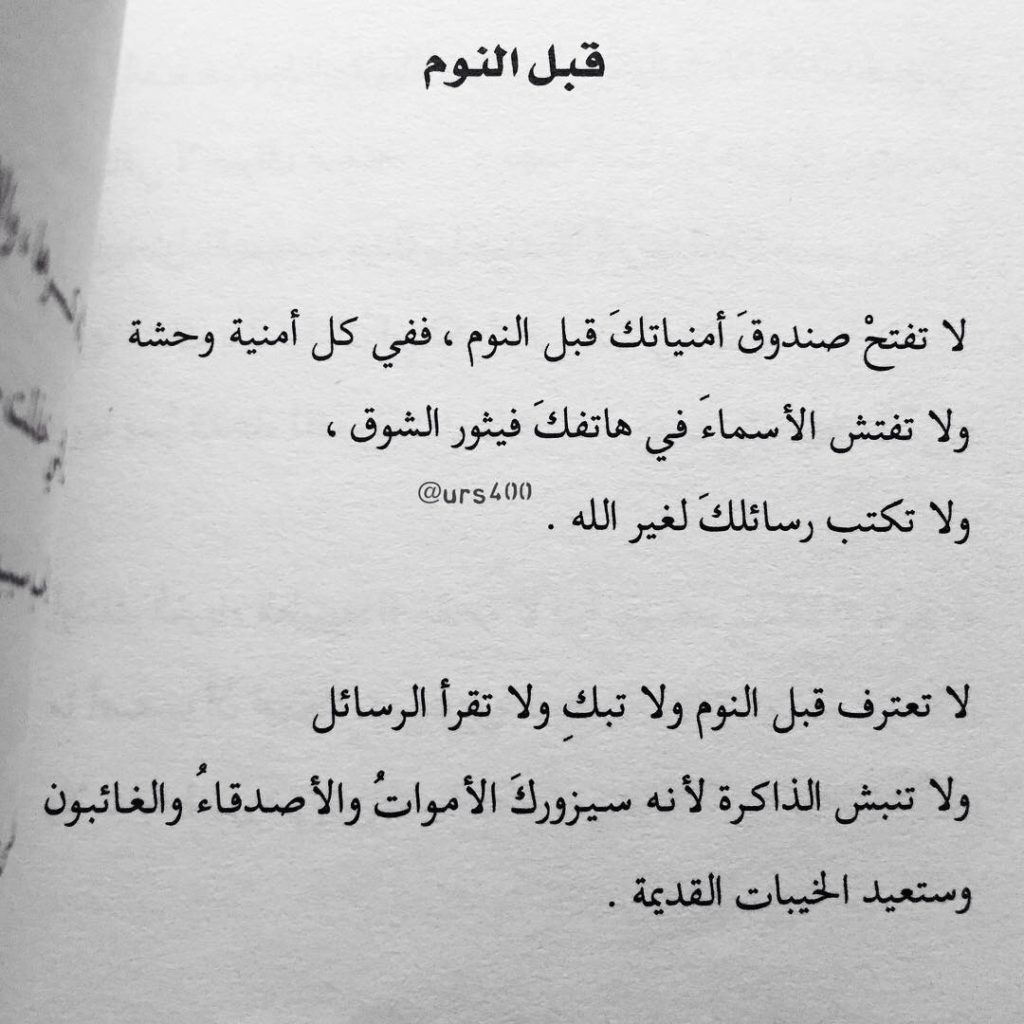 قبل النوم
لا تفتحْ صندوقَ أمنياتكَ قبل النوم ، ففي كل أمنية وحشة
ولا تفتش الأسماءَ في هاتفكَ فيثور الشوق ،
@urs400
ولا تكتب رسائلكَ لغير الله .
لا تعترف قبل النوم ولا تبكِ ولا تقرأ الرسائل
ولا تنبش الذاكرة لأنه سيزوركَ الأمواتُ والأصدقاءُ والغائبون
وستعيد الخيبات القديمة .